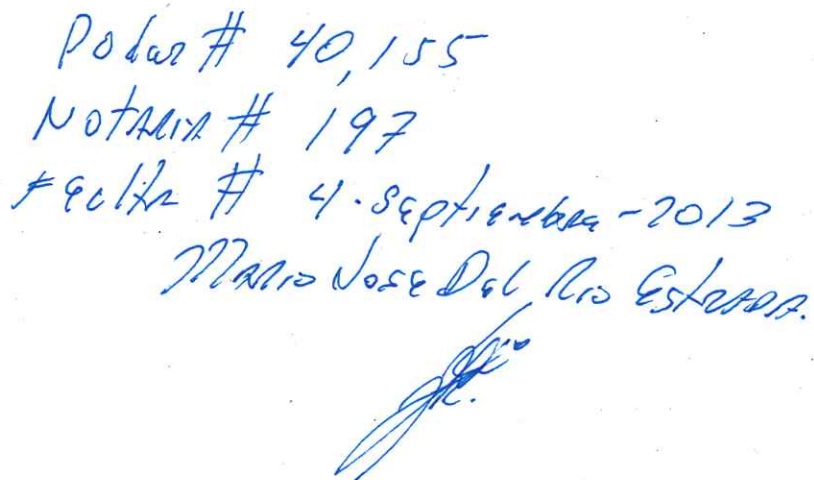 Poder # 40,155
Notaria # 197
Fecha # 4-septiembre-2013
Mario Jose Del Rio Estrada.